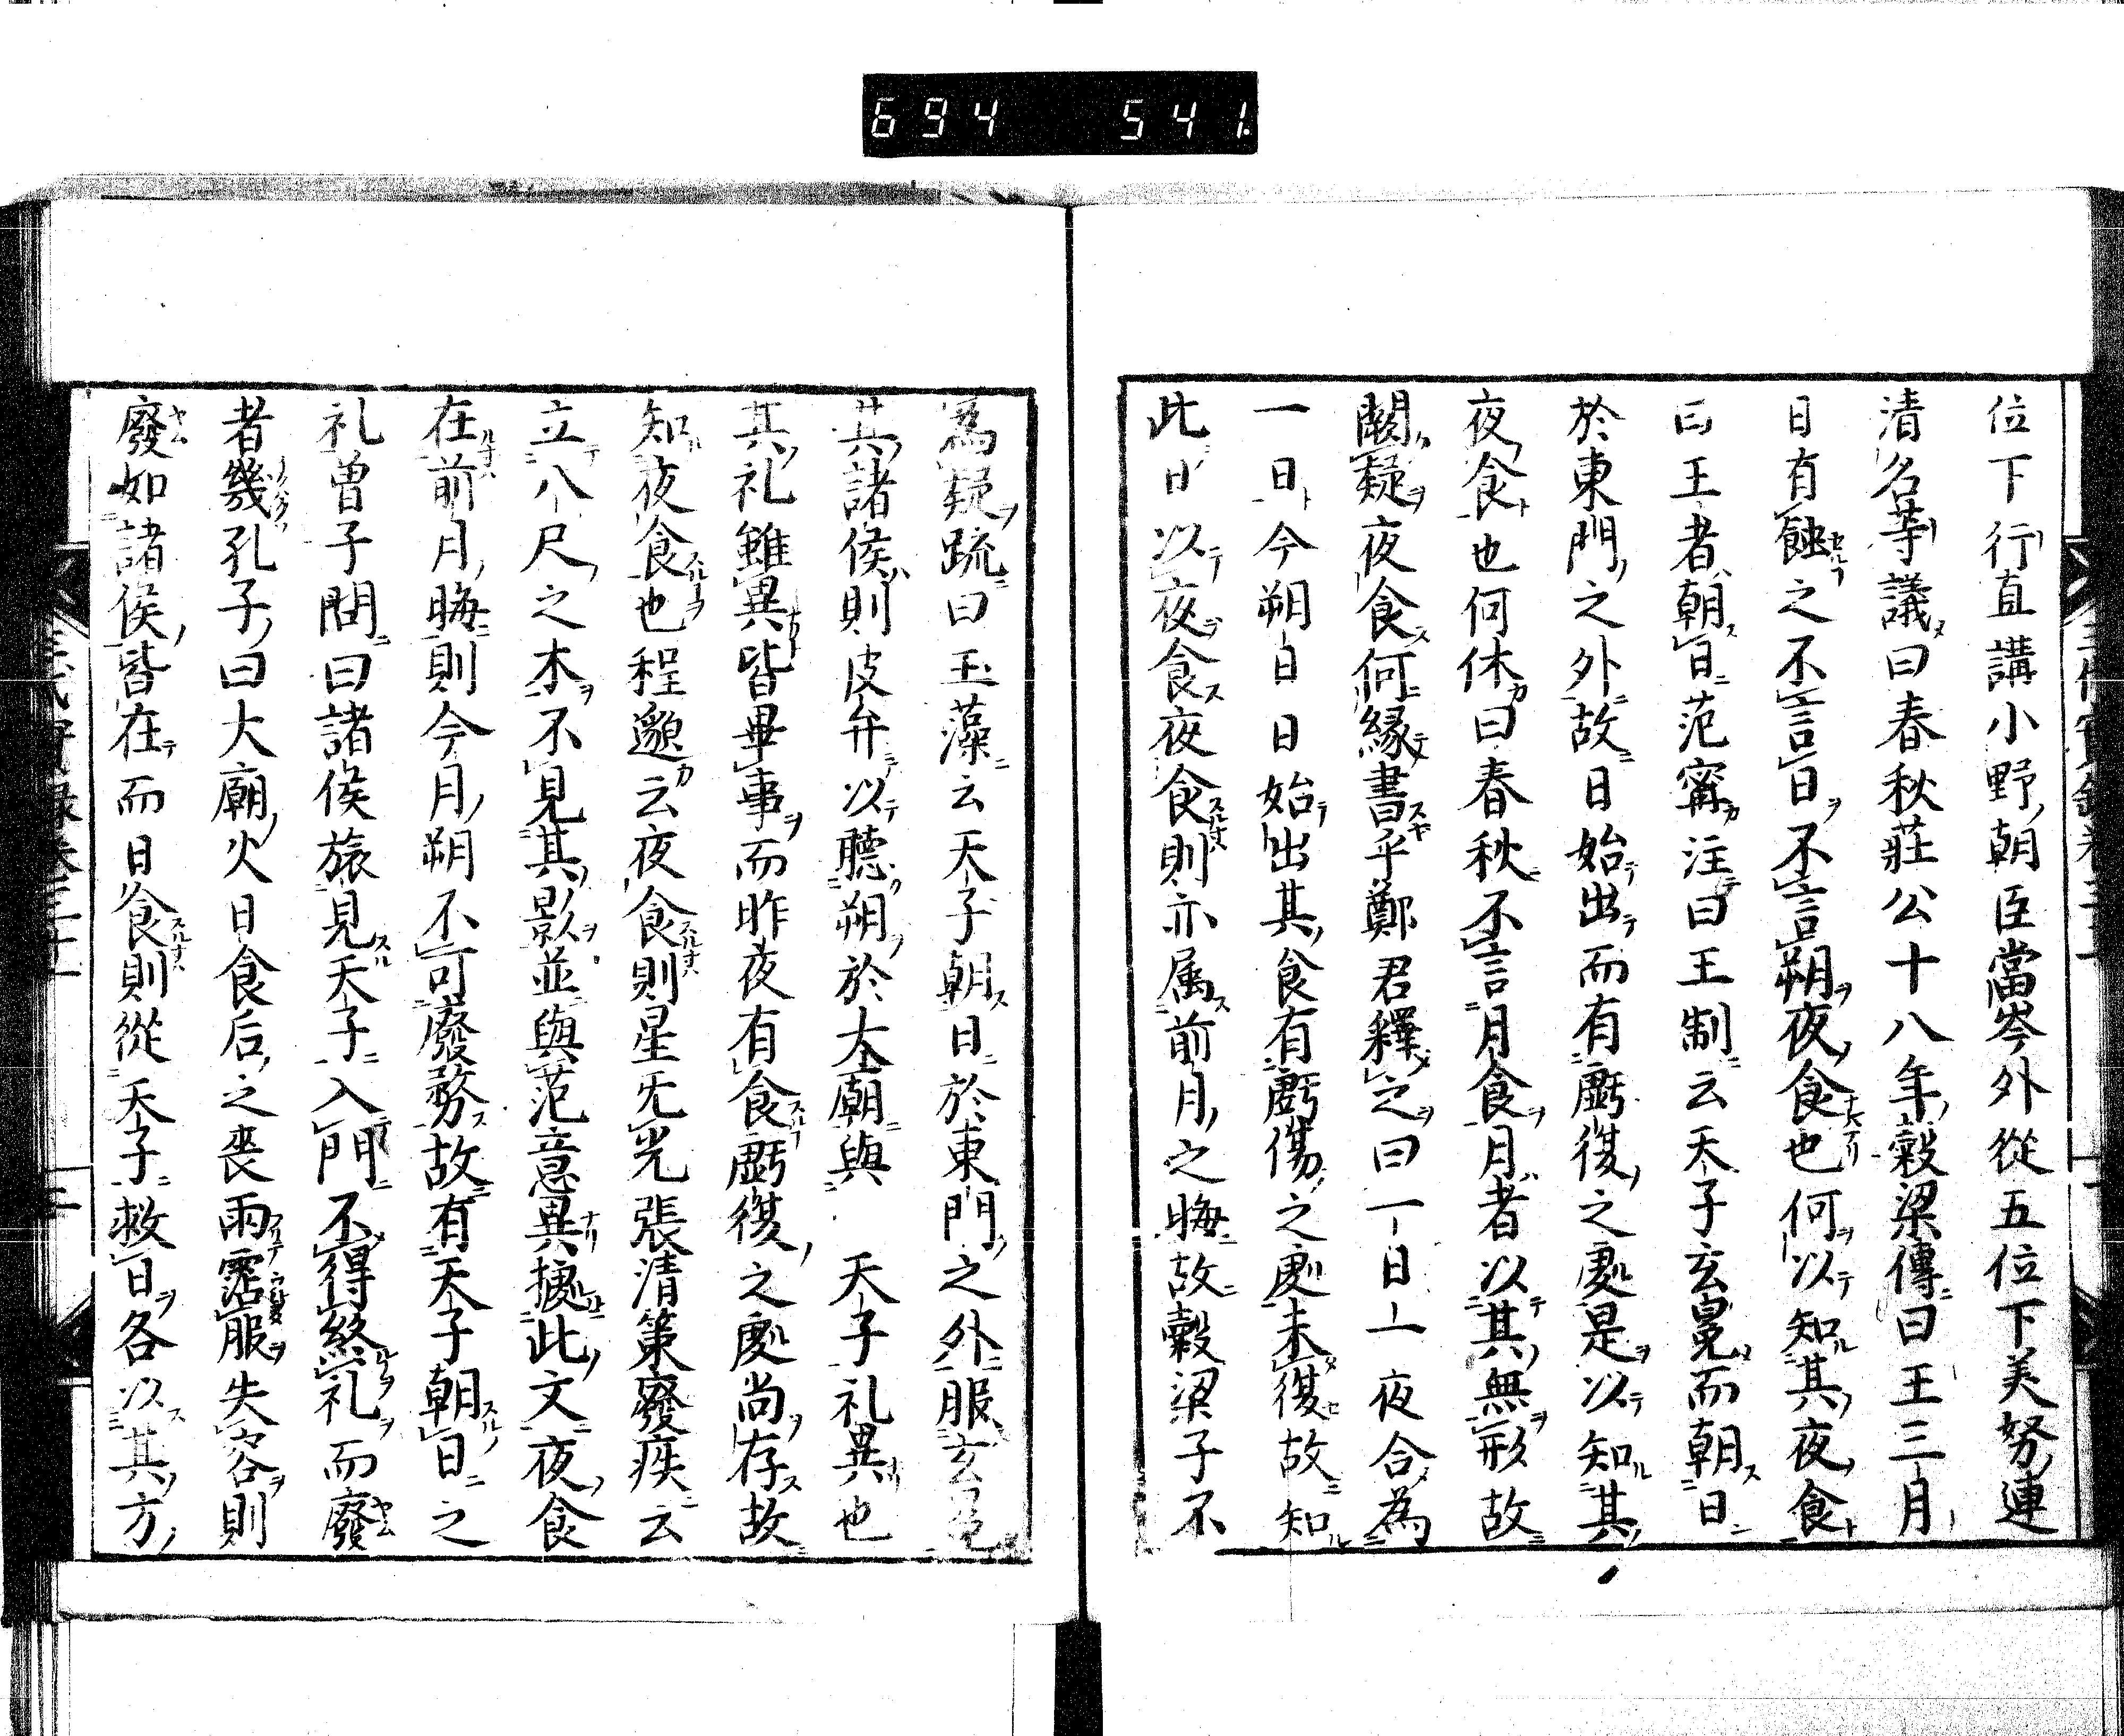 694 541.
位下行直講小野朝臣當岑外從五位下美努連
清名等議曰春秋莊公十八年穀梁傳曰王三月
日有蝕之不言日不言朔夜食也何以知其夜食
曰王者朝日范寗注曰王制云天子玄冕而朝日
於東門之外故日始出而有虧復之處是以知其
夜食也何休曰春秋不言月食月者以其無形故
闕疑夜食何緣書乎鄭君釋之曰一日一夜合為
一日今朔日日始出其食有虧傷之處未復故知
此日以夜食夜食則亦属前月之晦故穀梁子不
為疑疏曰玉藻云天子朝日於東門之外服玄冕
其諸侯則皮弁以聽朔於大廟與 天子礼異也
其礼雖異皆畢事而昨夜有食虧復之處尚存故
知夜食也程邈云夜食則星无光張清策廢疾云
立八尺之木不見其影並與范意異據此文夜食
在前月晦則今月朔不可廢務故有天子朝日之
礼曾子問曰諸侯旅見天子入門不得終礼而廢
者幾孔子曰大廟火日食后之喪雨霑服失容則
廢如諸侯皆在而日食則從天子救日各以其方